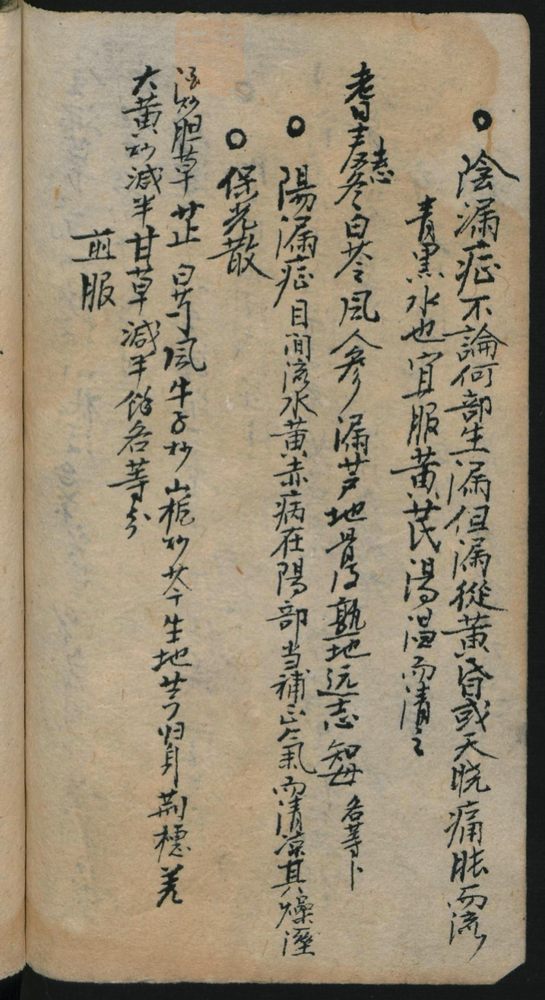 陰漏症不論何部生漏但漏從黃昏或天晓痛胀而流
青黑水也宜服黃芪湯温而清之
耆冬志白苓風人參漏芦地骨皮熟地远志知母各等卜
陽漏症目間流水黃赤病在陽部当補正氣而清凉其燥溼
保光散
酒炒胆草芷白芍風牛子炒山梔炒芩生地芎归身荊穗羌
大黄炒減半甘草減半餘各等分
煎服